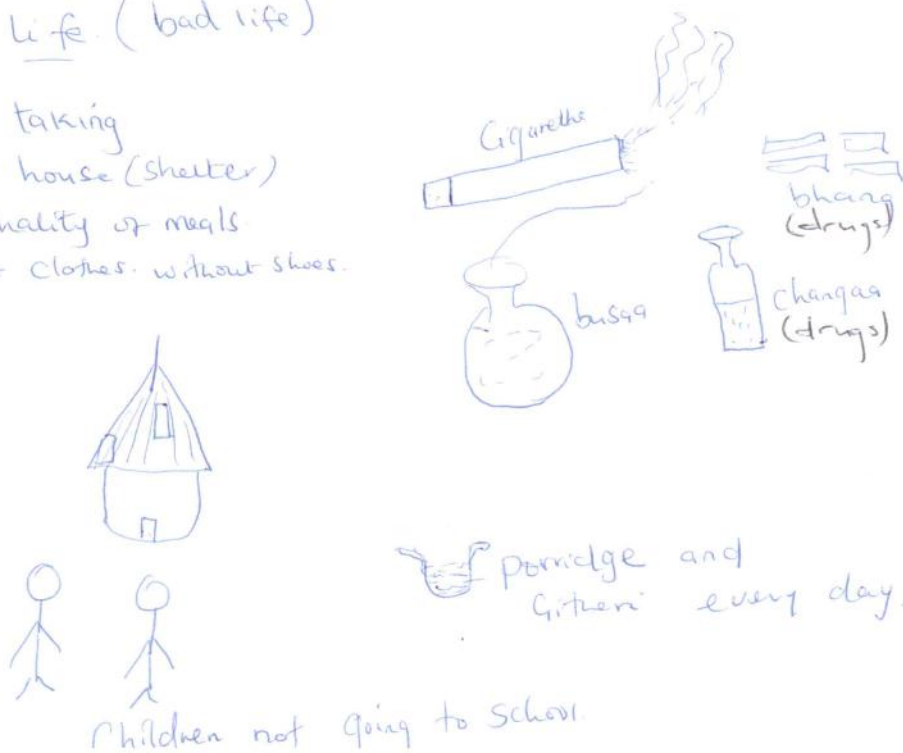 life. (bad life)
taking
house (shelter)
nality of meals.
clothes. without shoes.
Cigarette
bhang
(drugs)
busaa
changaa
(drugs)
porridge and
Githeri every day.
Children not going to school.